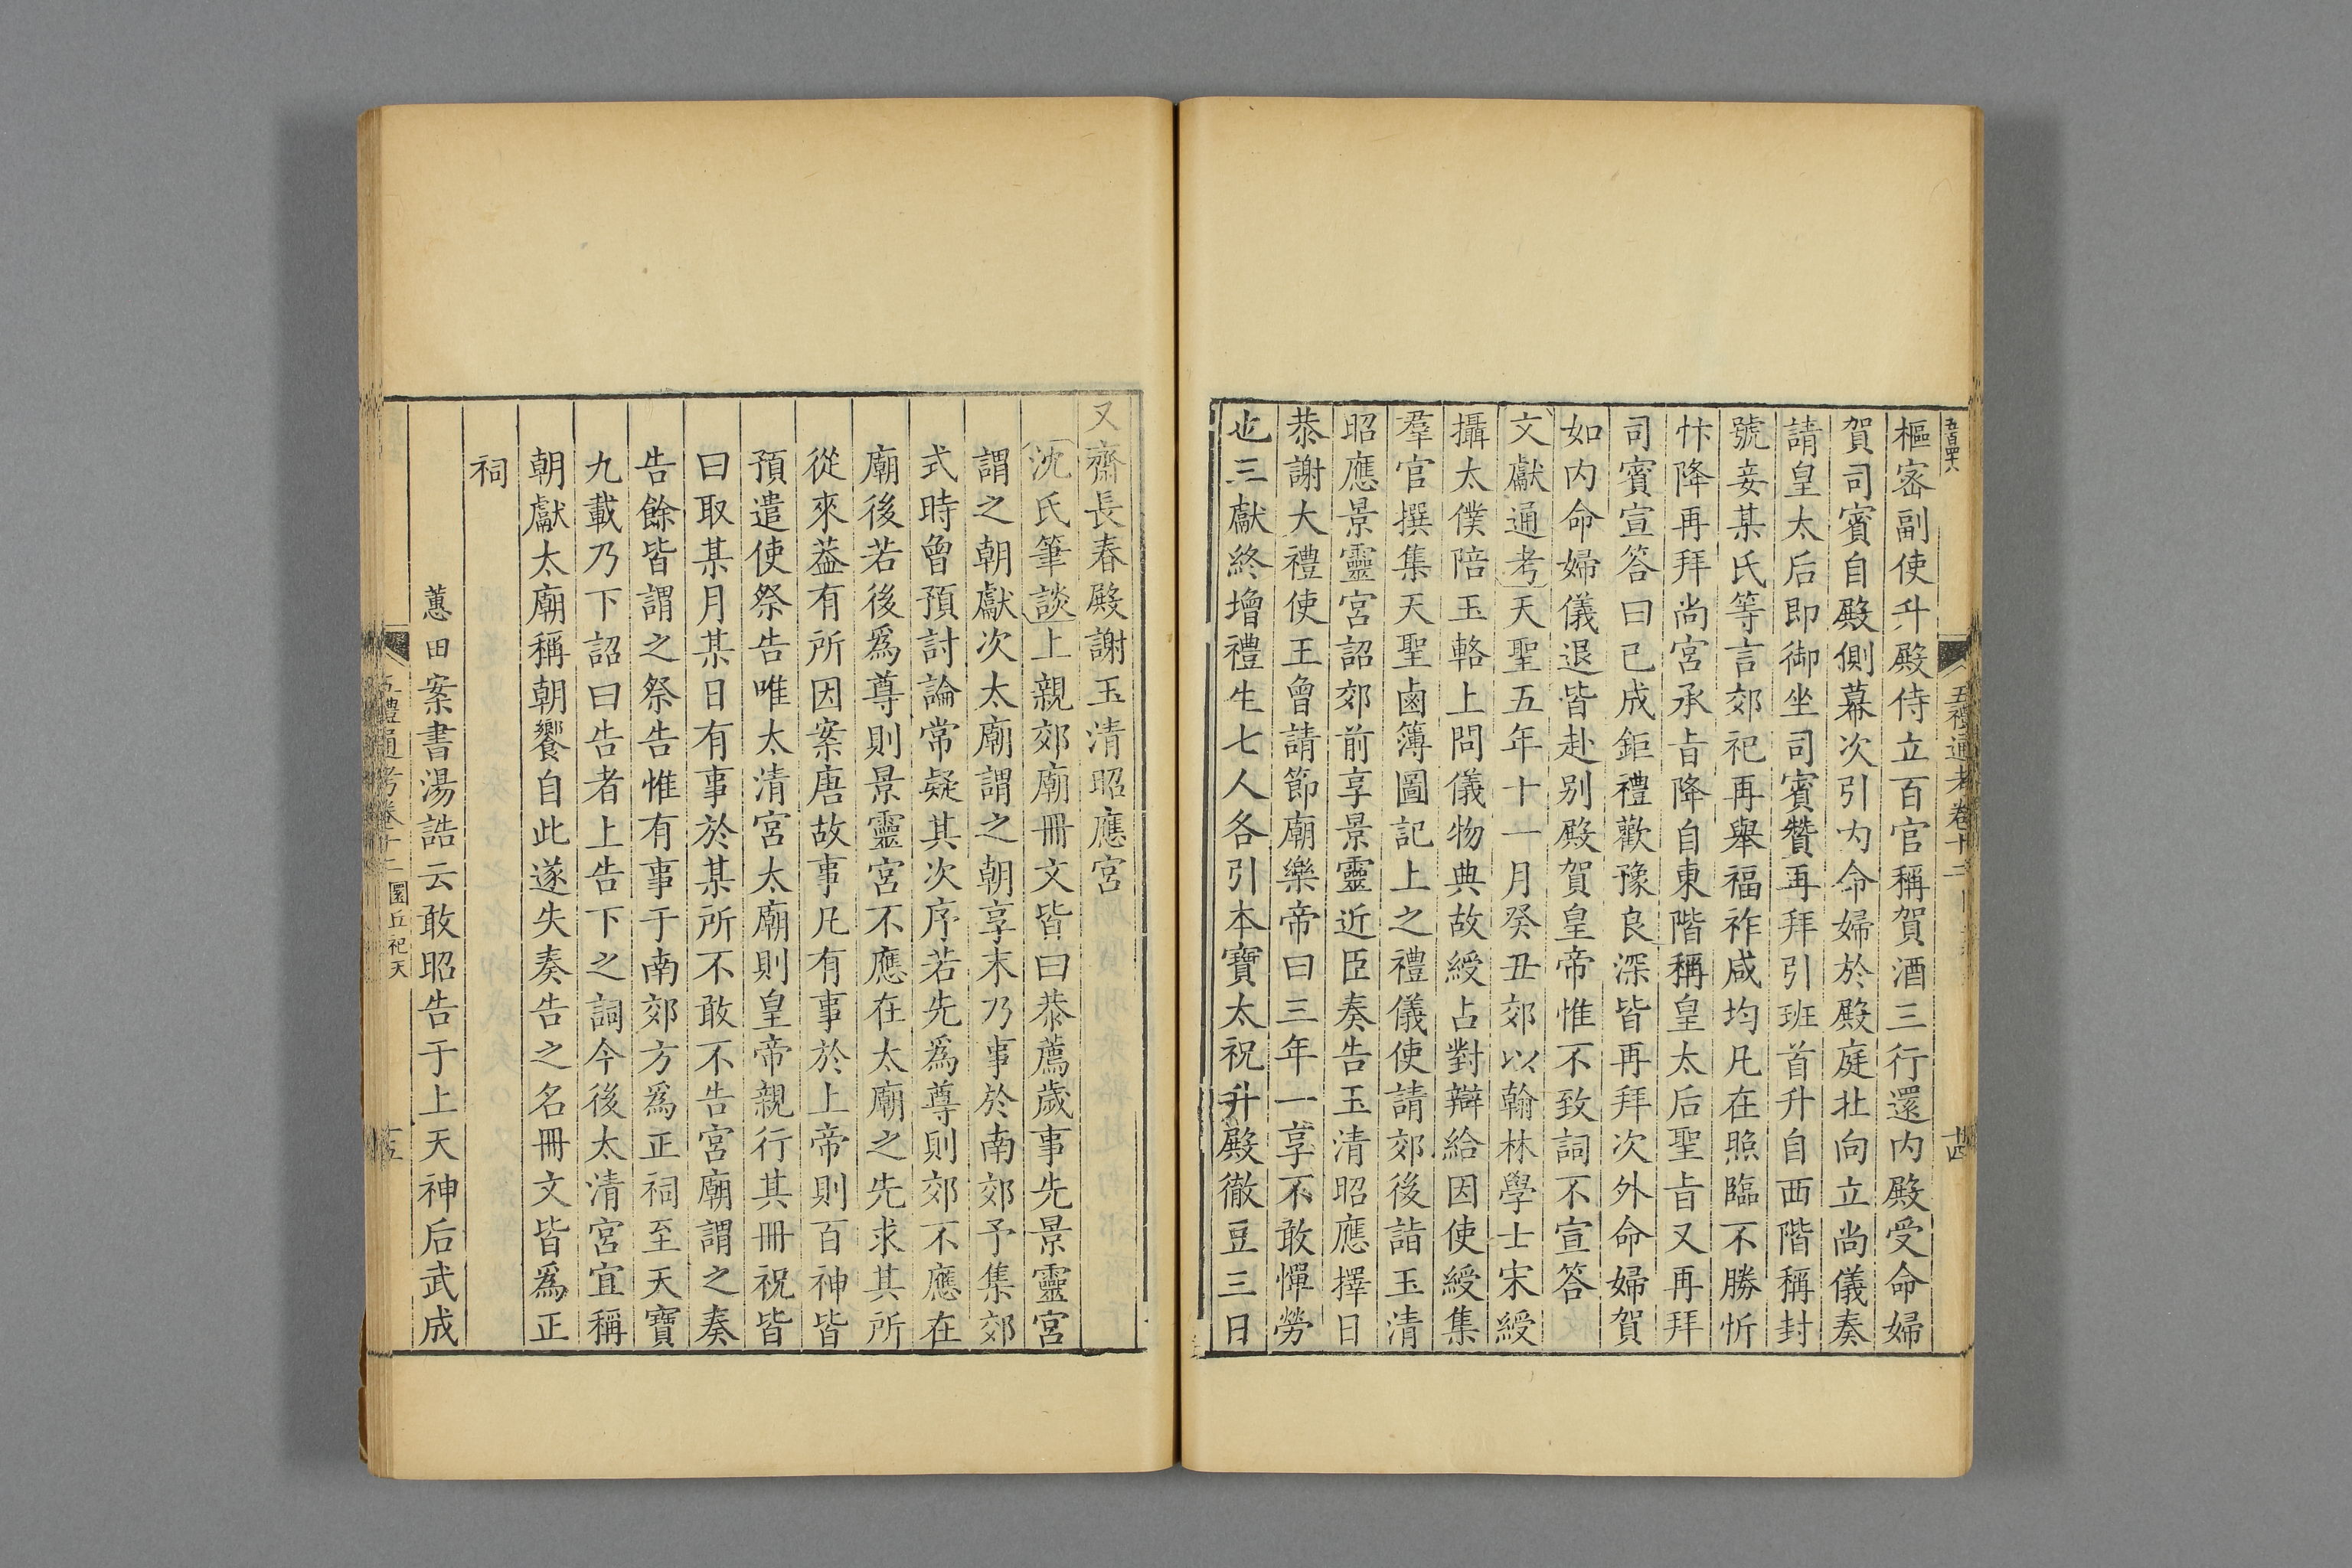 五百四十八
五禮通考卷十二
十四
樞宻副使升殿侍立百官稱賀酒三行還内殿受命婦
賀司賓自殿側幕次引内命婦於殿庭北向立尚儀奏
請皇太后即御坐司賓贊再拜引班首升自西階稱封
號妾某氏等言郊祀再舉福祚咸均凡在照臨不勝忻
忭降再拜尚宮承旨降自東階稱皇太后聖旨又再拜
司賓宣答曰已成鉅禮歡豫良深皆再拜次外命婦賀
如内命婦儀退皆赴别殿賀皇帝惟不致詞不宣答
文獻通考天聖五年十一月癸丑郊以翰林學士宋綬
攝太僕陪玉輅上問儀物典故綬占對辯給因使綬集
羣官撰集天聖鹵簿圖記上之禮儀使請郊後詣玉清
昭應景靈宮詔郊前享景靈近臣奏告玉清昭應擇日
恭謝大禮使王曾請節廟樂帝曰三年一享不敢憚勞
也三獻終增禮生七人各引本寶太祝升殿徹豆三日
又齋長春殿謝玉清昭應宮
沈氏筆談上親郊廟冊文皆曰恭薦歲事先景靈宮
謂之朝獻次太廟謂之朝享末乃事於南郊予集郊
式時曾預討論常疑其次序若先爲尊則郊不應在
廟後若後爲尊則景靈宮不應在太廟之先求其所
從來葢有所因案唐故事凡有事於上帝則百神皆
預遣使祭告唯太清宮太廟則皇帝親行其冊祝皆
曰取某月某日有事於某所不敢不告宮廟謂之奏
告餘皆謂之祭告惟有事于南郊方爲正祠至天寶
九載乃下詔曰告者上告下之詞今後太清宮宜稱
朝獻太廟稱朝饗自此遂失奏告之名冊文皆爲正
祠
蕙田案書湯誥云敢昭告于上天神后武成
五禮通考卷十二
圜丘祀天